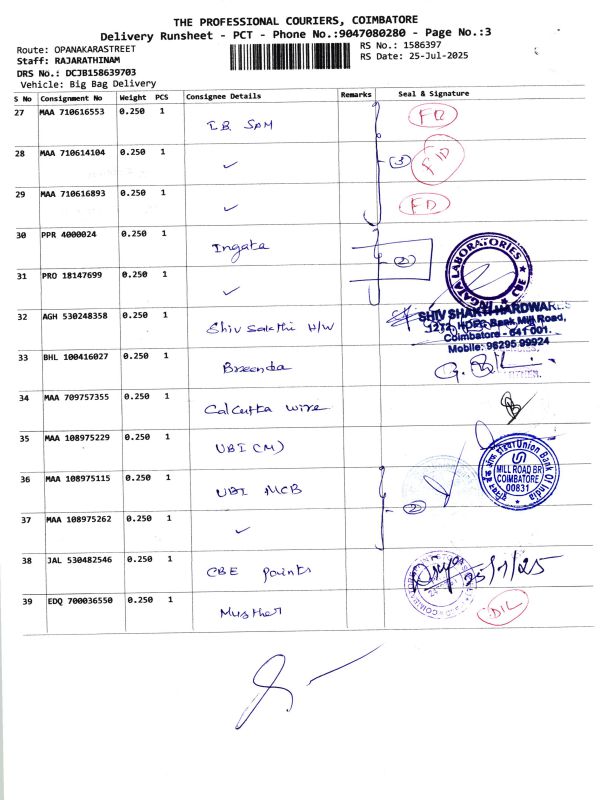 THE PROFESSIONAL COURIERS, COIMBATORE
Delivery Runsheet - PCT - Phone No.:9047080280 - Page No.:3
Route: OPANAKARASTREET
Staff: RAJARATHINAM
DRS No.: DCJB158639703
Vehicle: Big Bag Delivery
RS No.: 1586397
RS Date: 25-Jul-2025
S No Consignment No Weight PCS Consignee Details Remarks Seal & Signature
27 MAA 710616553 0.250 1 I.B. SPM FD
28 MAA 710614104 0.250 1 ✓ 3 FD
29 MAA 710616893 0.250 1 ✓ FD
30 PPR 4000024 0.250 1 Ingata 2
LABORATORIES
31 PRO 18147699 0.250 1 ✓
32 AGH 530248358 0.250 1 Shiv Sakthi H/W
SHIV SHAKTI HARDWARES
1212, HDFC Bank Mill Road,
Coimbatore - 641 001.
Mobile: 98295 99924
33 BHL 100416027 0.250 1 Breenda
34 MAA 709757355 0.250 1 Calcutta wire
35 MAA 108975229 0.250 1 UBI (M)
Union Bank Of India
MILL ROAD BR
COIMBATORE
00831
36 MAA 108975115 0.250 1 UBI MCB 2
37 MAA 108975262 0.250 1 ✓
38 JAL 530482546 0.250 1 CBE Points 25/7/25
39 EDQ 700036550 0.250 1 Musther DIL